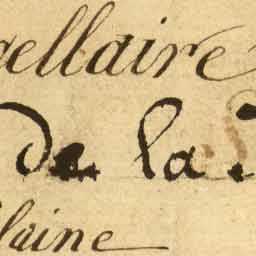 cellaire
de la
laine